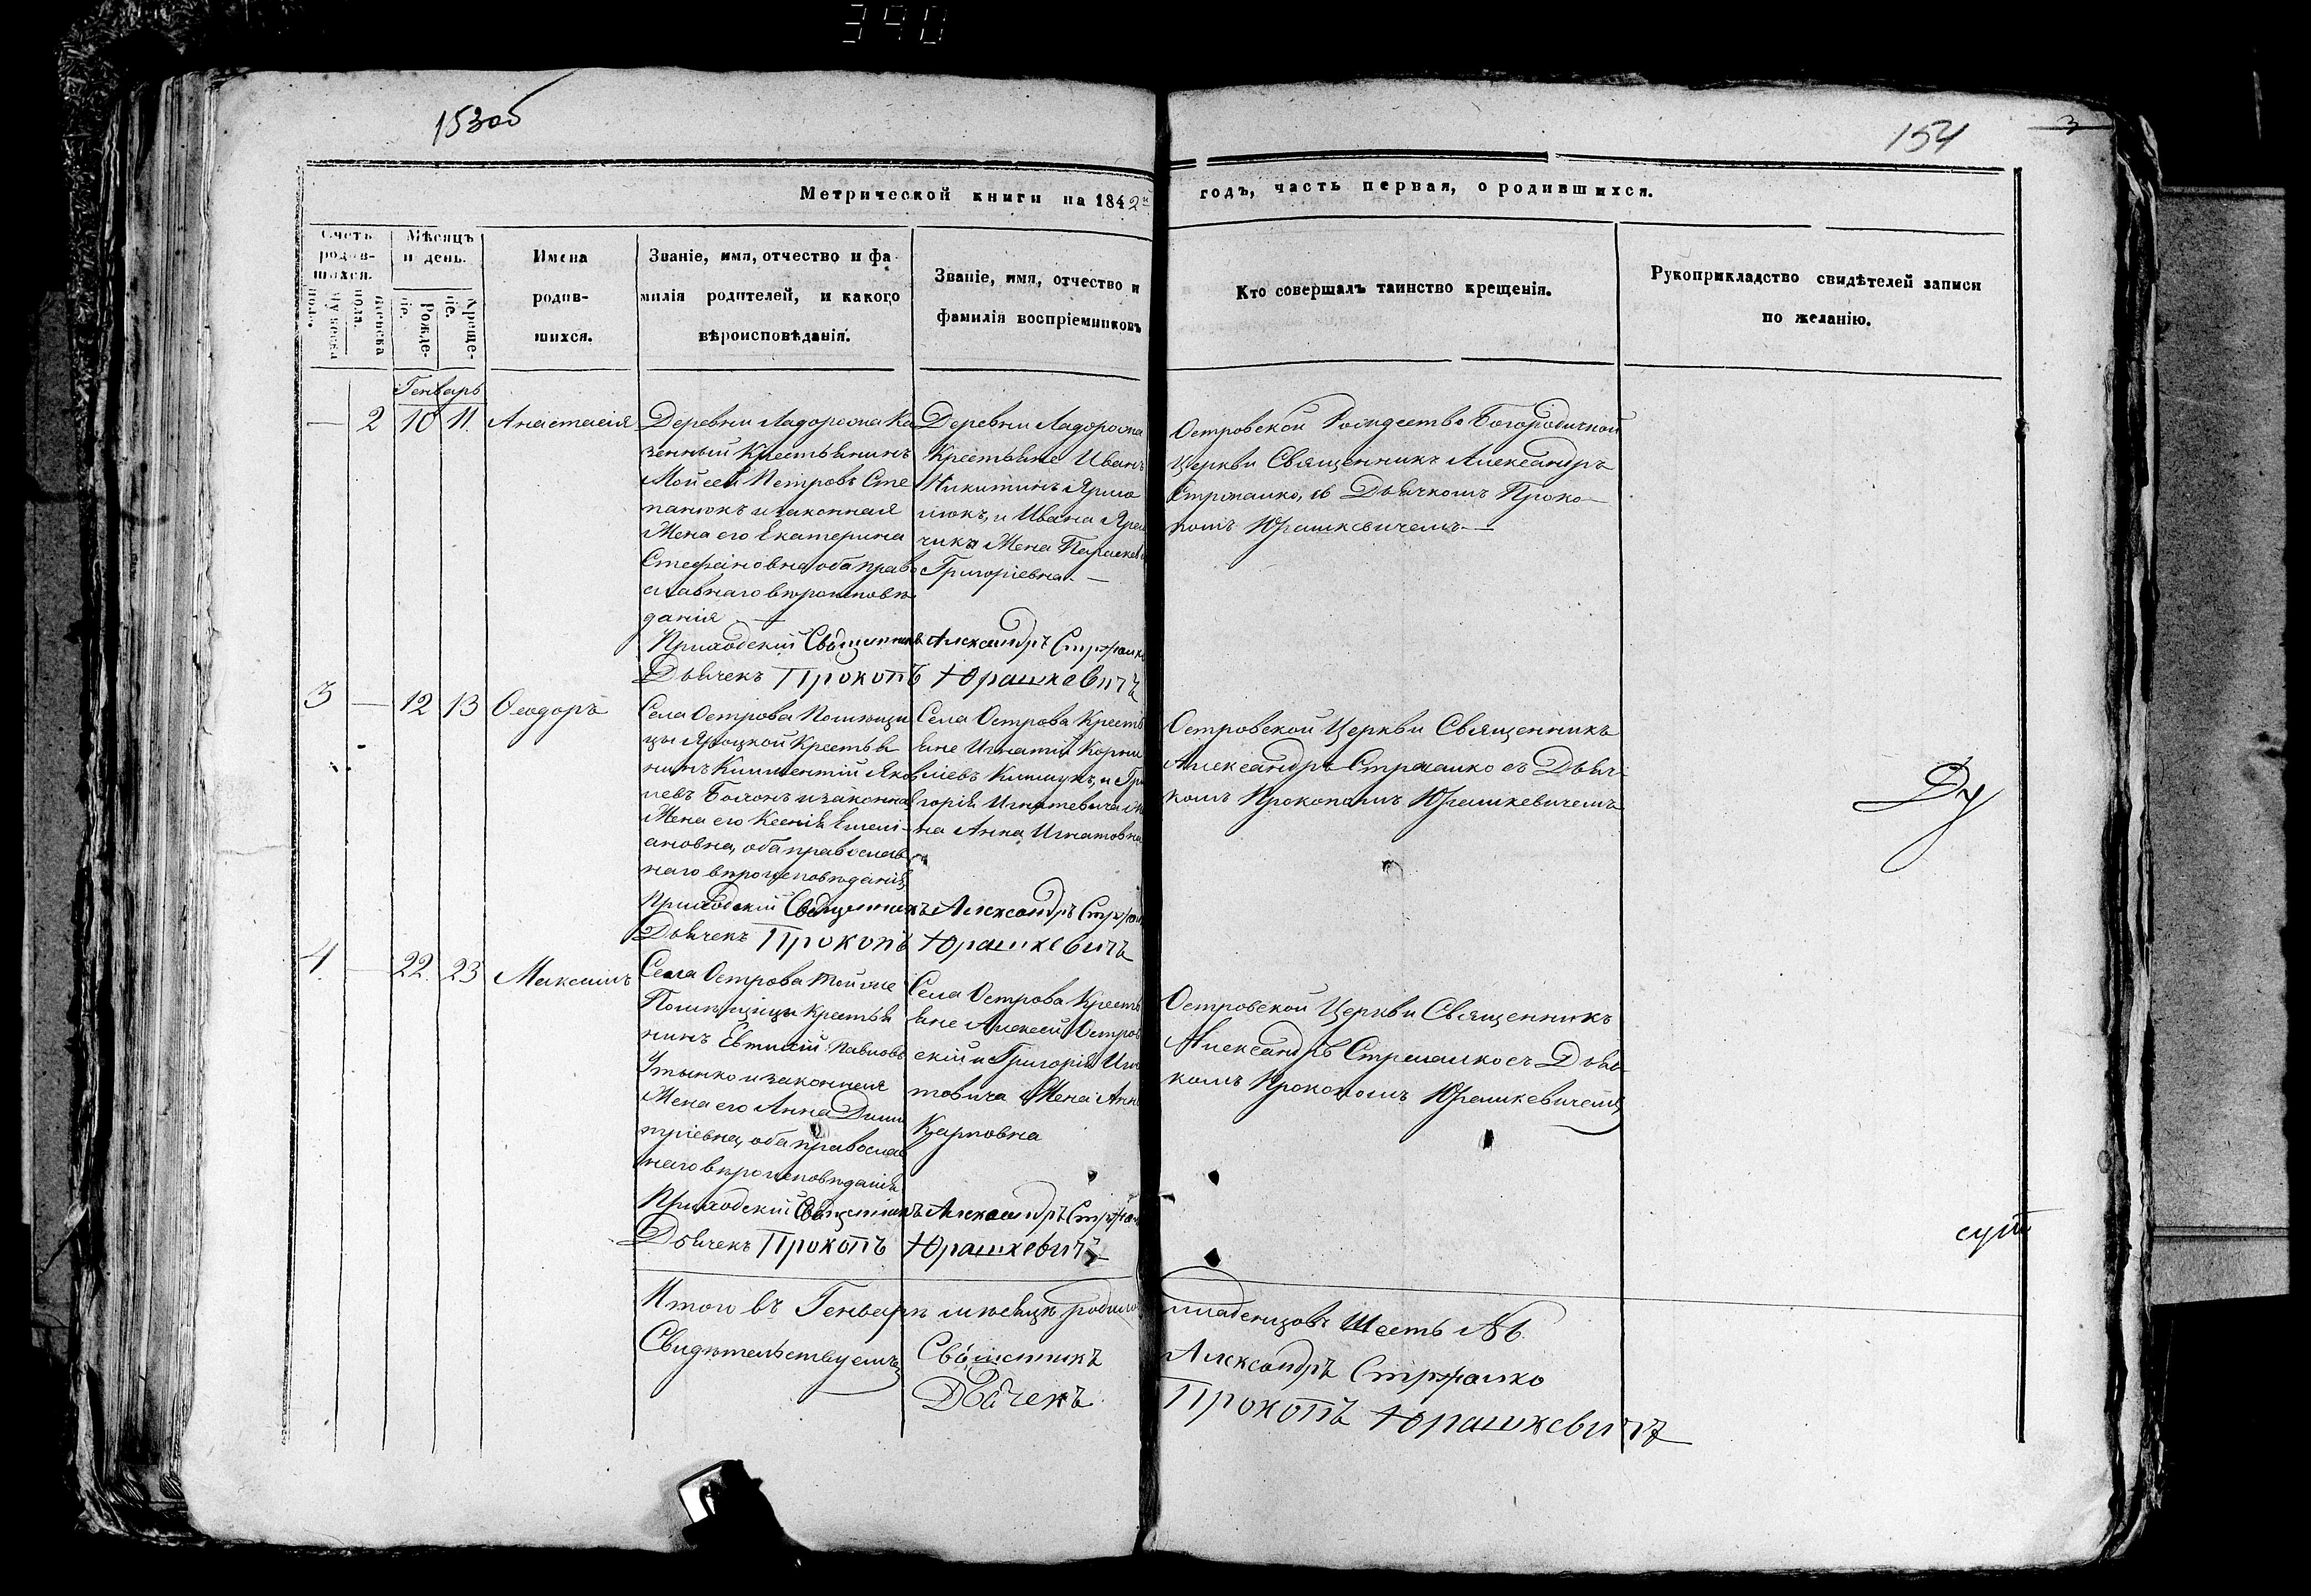 390
153об
154
3
Метрической книги на 1842й годъ, часть первая, о родившихся.
Счетъ родив-шихся.
Мужеска пола.
Женска пола.
Мѣсяцъ и день.
Рожде-нiе.
Креще-нiе.
Имена
родив-
шихся.
Званіе, имя, отчество и фа
милія родителей, и какого
вѣроисповѣданія.
Званіе, имя, отчество и
фамилія воспріемниковъ
Кто совершалъ таинство крещенія.
Рукоприкладство свидѣтелей записи
по желанію.
Генварь
— 2 10 11. Анастасія
Деревни Ладорожа Ка
зенный Крестьянинъ
Мойсей Петровъ Сте
панюкъ и законная
Жена его Екатерина
Стефановна, оба право
славнаго вѣроисповѣ
данія —
Деревни Ладорожа
Крестьяне Иванъ
Никитинъ
и Ивана
Жена Параскева
Григоріевна. —
Островской Рождество Богородичной
Церкви Священникъ Александръ
Стржалко, съ Дьячкомъ Проко-
помъ Юрашкевичемъ —
Приходскій Священникъ Александръ Стржалко
Дьячекъ Прокопъ Юрашкевичъ
3 — 12 13 Ѳеодоръ
Села Острова Помѣщи
цы Яроцкой Крестья
нинъ Климентій Яков
левъ и законная
Жена его Ксенія Емелі-
ановна, оба православ
наго вѣроисповѣданія,
Села Острова Кресть
яне Игнатій Корни
ліевъ Климукъ, и Гри
горія Игнатевича Же
на Анна Игнатовна
Островской Церкви Священникъ
Александръ Стржалко съ Дьяч-
комъ Прокопомъ Юрашкевичемъ
Приходскій Священникъ Александръ Стржал
Дьячекъ Прокопъ Юрашкевичъ
4. — 22. 23 Максимъ
Села Острова тойже
Помѣщицы Крестья
нинъ Евтихій Павловъ
Утынко и законная
Жена его Анна Дими
тріевна, оба православ
наго вѣроисповѣданія
Села Острова Кресть
яне Алексей Остров
скій и Григорія Игна
товича Жена Анна
Карповна
Островской Церкви Священникъ
Александръ Стржалко съ Дьяч
комъ Прокопомъ Юрашкевичемъ,
Приходскій Священникъ Александръ Стржал
Дьячекъ Прокопъ Юрашкевичъ
Итого въ Генварѣ мѣсяцѣ родилось младенцовъ Шесть №6.
Свидѣтельствуемъ, Священникъ Александръ Стржалко
Дьячекъ Прокопъ Юрашкевичъ